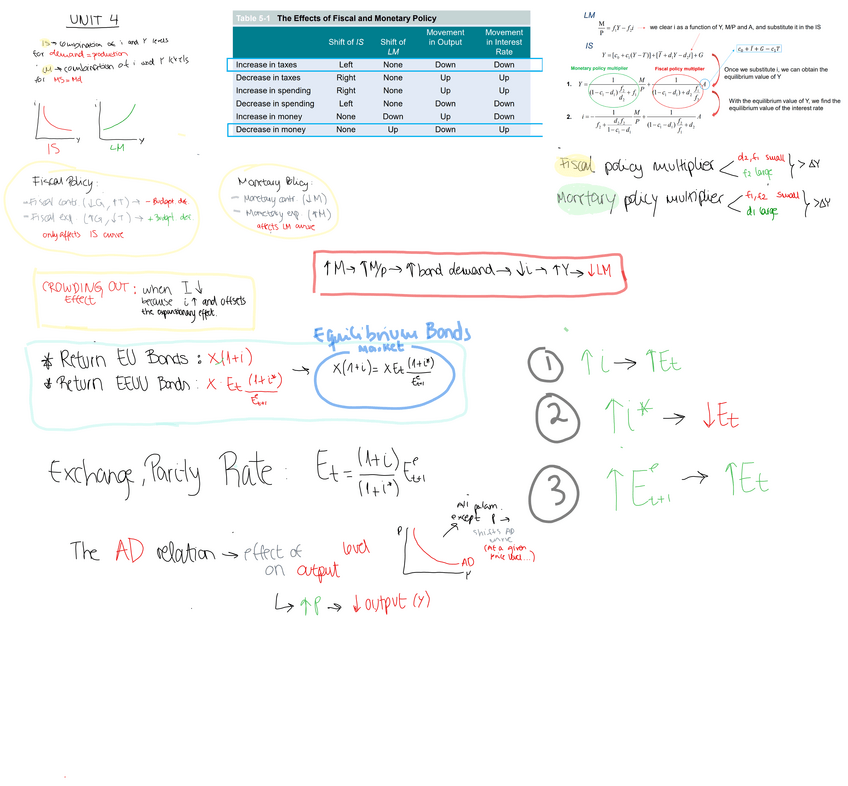 UNIT 4
IS → combination of i and Y levels
for demand = production
LM → combination of i and Y levels
for MS = Md
i
Y
IS
i
Y
LM
Table 5-1 The Effects of Fiscal and Monetary Policy
Shift of IS Shift of LM Movement in Output Movement in Interest Rate
Increase in taxes Left None Down Down
Decrease in taxes Right None Up Up
Increase in spending Right None Up Up
Decrease in spending Left None Down Down
Increase in money None Down Up Down
Decrease in money None Up Down Up
LM
M/P = f₁Y − f₂i → we clear i as a function of Y, M/P and A, and substitute it in the IS
IS
Y = [c₀ + c₁(Y − T)] + [I + d₁Y − d₂i] + G
c₀ + I + G − c₁T
Once we substitute i, we can obtain the equilibrium value of Y
Monetary policy multiplier Fiscal policy multiplier
1. Y = 1/((1−c₁−d₁) f₂/d₂ + f₁) M/P + 1/((1−c₁−d₁) + d₂ f₁/f₂) A
With the equilibrium value of Y, we find the equilibrium value of the interest rate
2. i = − 1/(f₂ + d₂f₁/(1−c₁−d₁)) M/P + 1/((1−c₁−d₁) f₂/f₁ + d₂) A
Fiscal policy multiplier < d₂, f₁ small
f₂ large } > ΔY
Monetary policy multiplier < f₁, f₂ small
d₁ large } > ΔY
Fiscal Policy:
- Fiscal contr (↓G, ↑T) →
- Fiscal exp. (↑G, ↓T) →
only affects IS curve
Monetary Policy:
- Monetary contr. (↓M)
- Monetary exp. (↑M)
affects LM curve
↑M → ↑M/P → ↑bond demand → ↓i → ↑Y → ↓LM
CROWDING OUT: when I↓
Effect because i↑ and offsets
the expansionary effect.
* Return EU Bonds: X(1+i)
* Return EEUU Bonds: X · Et (1+i*)/Eᵉt+1
→
Equilibrium Bonds
market
X(1+i) = X Et (1+i*)/Eᵉt+1
1 ↑i → ↑Et
2 ↑i* → ↓Et
3 ↑Eᵉt+1 → ↑Et
Exchange, Parity Rate: Et = (1+i)/(1+i*) Eᵉt+1
The AD relation → effect of level
on output
↳ ↑P → ↓output (Y)
P
AD
Y
All param.
except P →
shifts AD
curve
(At a given
price level...)